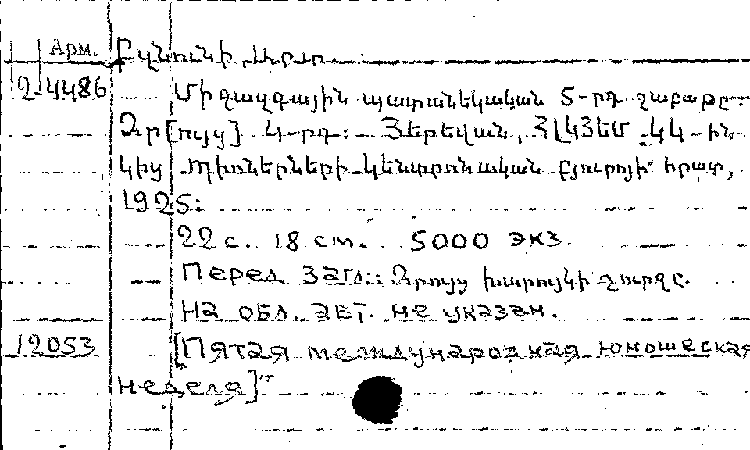 Арм. Բզնունի
2-4486 Միջազգային պատանեկական 5-րդ շաբաթը.
Զր[ույց] 4-րդ: Յերեվան, ՀԼԿՅԵՄ ԿԿ-ին
կից Պիոներների կենտրոնական բյուրոյի հրատ,
1925:
22 с. 18 см. 5000 экз.
Перед загл.: Զրույց խարույկի շուրջը.
На обл. авт. не указан.
12053 [Пятая международная юношеская
неделя]